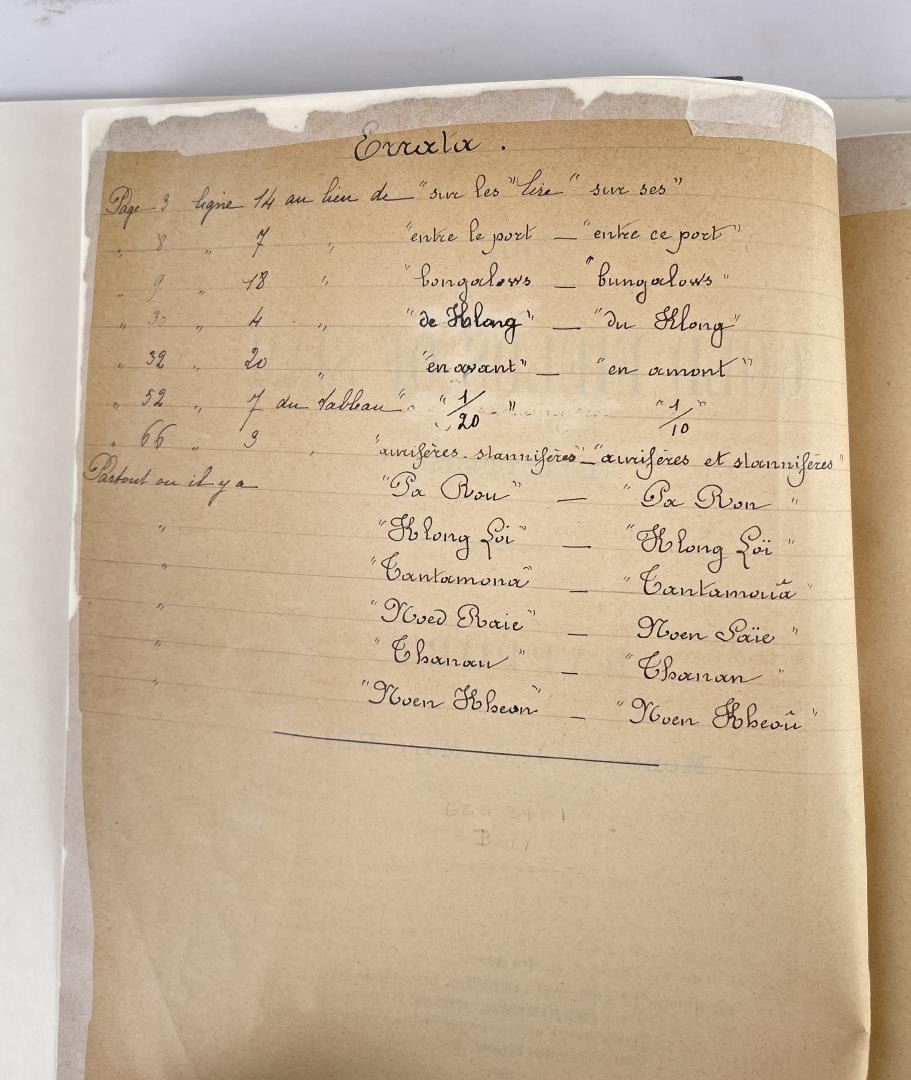 Errata .
Page 3 ligne 14 au lieu de "sur les" lire "sur ses"
" 8 " 7 " "entre le port — "entre ce port"
" 9 " 18 " "bongalows — "bungalows"
" 30 " 4 " "de Klong" — "du Klong"
" 32 " 20 " "en avant" — "en amont"
" 52 " 7 du tableau " "1/20" "1/10"
" 66 " 3 " "aurifères-stannifères" — "aurifères et stannifères"
Partout ou il y a "Pa Rou" — "Pa Ron"
" "Klong Loi" — "Klong Loï"
" "Tantamona" — "Tantamouâ"
" "Noed Raie" — Noen Saïe"
" "Thanau" — "Thanan"
" "Noen Kheon" — "Noen Kheoû"